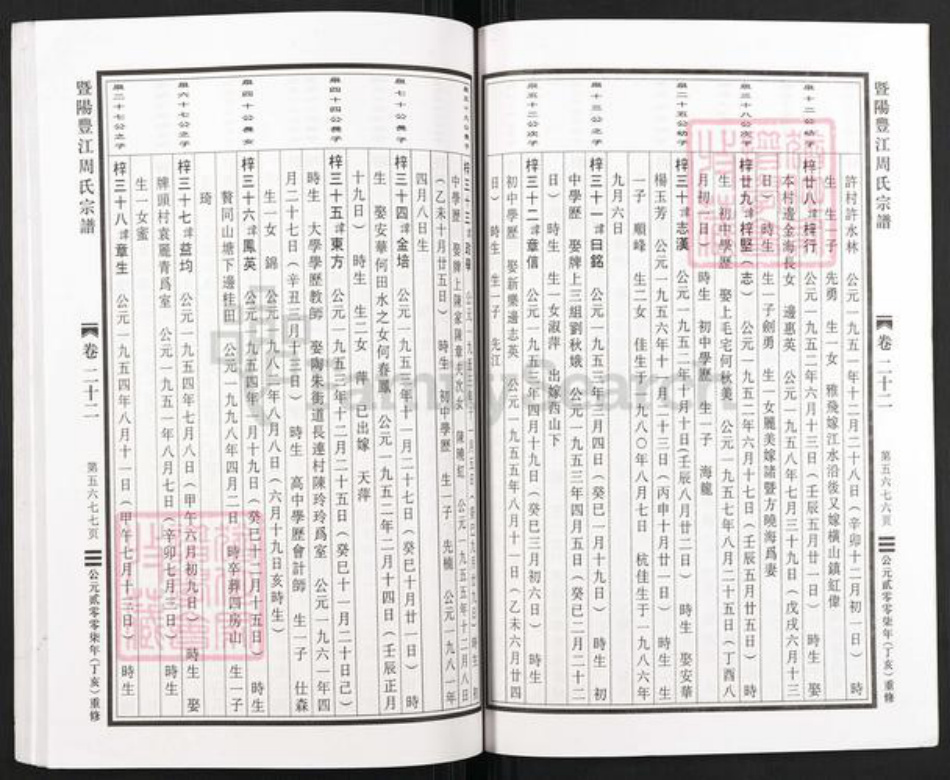 暨陽豐江周氏宗譜
卷二十二
第五六七六頁
公元貳零零柒年(丁亥)重修
許村許水林 公元一九五一年十二月二十八日(辛卯十二月初一日) 時
生 生一子 先勇 生一女 雅飛嫁江水沿後又嫁橫山鎮虹偉
梓廿八 諱梓行 公元一九五二年六月十三日(壬辰五月廿一日) 時生 娶
本村邊金海長女 邊惠英 公元一九五八年七月三十九日(戊戌六月十三
日) 時生 生一子劍勇 生一女麗美嫁諸暨方曉海爲妻
梓廿九 諱梓堅(志) 公元一九五二年六月十七日(壬辰五月廿五日) 時
生 初中學歷 娶上毛宅何秋美 公元一九五七年八月二十五日(丁酉八
月初一日) 時生 初中學歷 生一子 海龍
梓三十 諱志漢 公元一九五二年十月十日(壬辰八月廿二日) 時生 娶安華
楊玉芳 公元一九五六年十二月二十三日(丙申十月廿一日) 時生 生
一子 順峰 生二女 佳生于一九八〇年八月七日 杭佳生于一九八六年
九月六日
梓三十一 諱曰銘 公元一九五三年三月四日(癸巳一月十九日) 時生 初
中學歷 娶牌上三組劉秋娥 公元一九五三年四月五日(癸巳二月二十二
日) 時生 生一女淑萍 出嫁酉山下
梓三十二 諱章信 公元一九五三年四月十九日(癸巳三月初六日) 時生
初中學歷 娶新樂邊志英 公元一九五五年八月十一日(乙未六月廿四
日) 時生 生一子 先江
梓三十三 諱
中學歷 娶牌上陳家陳章夫次女 陳曉虹 公元一九五五年十二月八日
(乙未十月廿五日) 時生 初中學歷 生一子 先楠 公元一九八一年
四月八日生
梓三十四 諱金培 公元一九五三年十一月二十七日(癸巳十月廿一日) 時
生 娶安華何田水之女何春鳳 公元一九五二年二月十四日(壬辰正月
十九日) 時生 生二女 萍 已出嫁 天萍
梓三十五 諱東方 公元一九五三年十二月二十五日(癸巳十一月二十日己)
時生 大學學歷教師 娶陶朱街道長連村陳玲玲爲室 公元一九六一年四
月二十七日(辛丑三月十三日) 時生 高中學歷會計師 生一子 仕森
生一女 錦 公元一九八二年八月八日(六月十九日亥時生)
梓三十六 諱鳳英 公元一九五四年一月十九日(癸巳十二月十五日) 時生
贅同山塘下邊桂田 公元一九九八年四月二日 時卒葬四房山 生一子
琦
梓三十七 諱益均 公元一九五四年七月八日(甲午六月初九日) 時生 娶
牌頭村袁麗青爲室 公元一九五一年八月七日(辛卯七月三日) 時生
生一女蜜
梓三十八 諱章生 公元一九五四年八月十一日(甲午七月十三日) 時生
暨陽豐江周氏宗譜
卷二十二
第五六七七頁
公元貳零零柒年(丁亥)重修